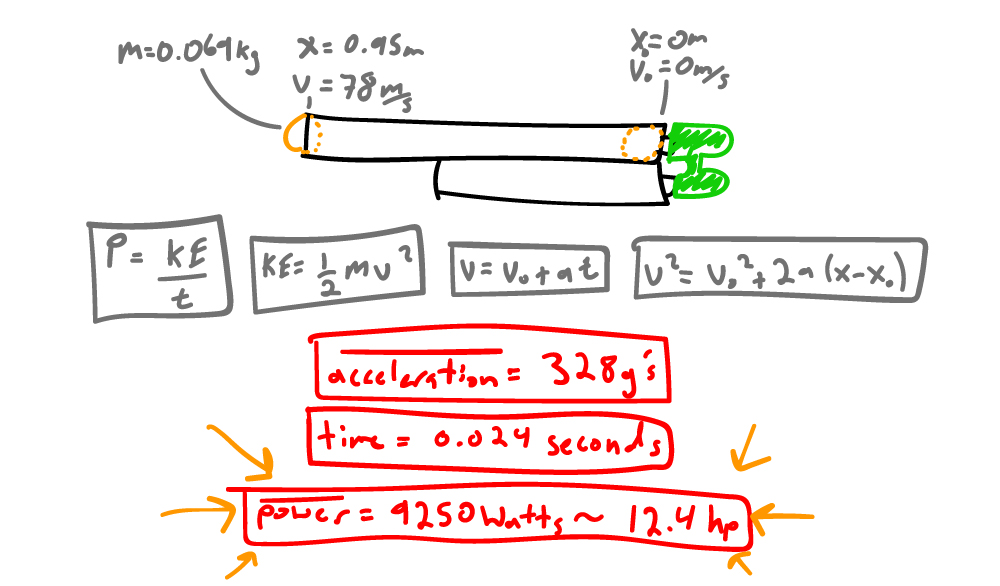 m=0.069kg
x = 0.95m
v = 78 m/s
x₀=0m
v₀=0m/s
P = KE/t
KE = 1/2 mv²
v = v₀ + at
v² = v₀² + 2a(x-x₀)
acceleration = 328g's
time = 0.024 seconds
power = 9250 Watts ~ 12.4 hp